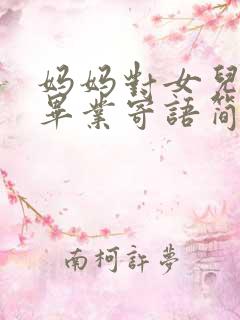 妈妈對女兒
畢業寄語簡
南柯許夢